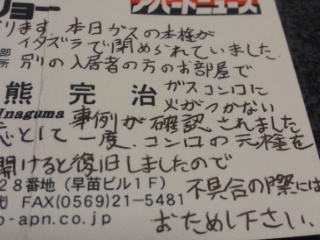 ります 本日ガスの本栓が
イタズラで閉められていました
別の入居者の方のお部屋で
熊 完 治
Inaguma
ガスコンロに
火がつかない
事例が確認されました
一度、コンロの元栓を
開けると復旧しましたので
28番地(早苗ビル1F)
FAX(0569)21-5481
p-apn.co.jp
不具合の際には
おため し下さい.